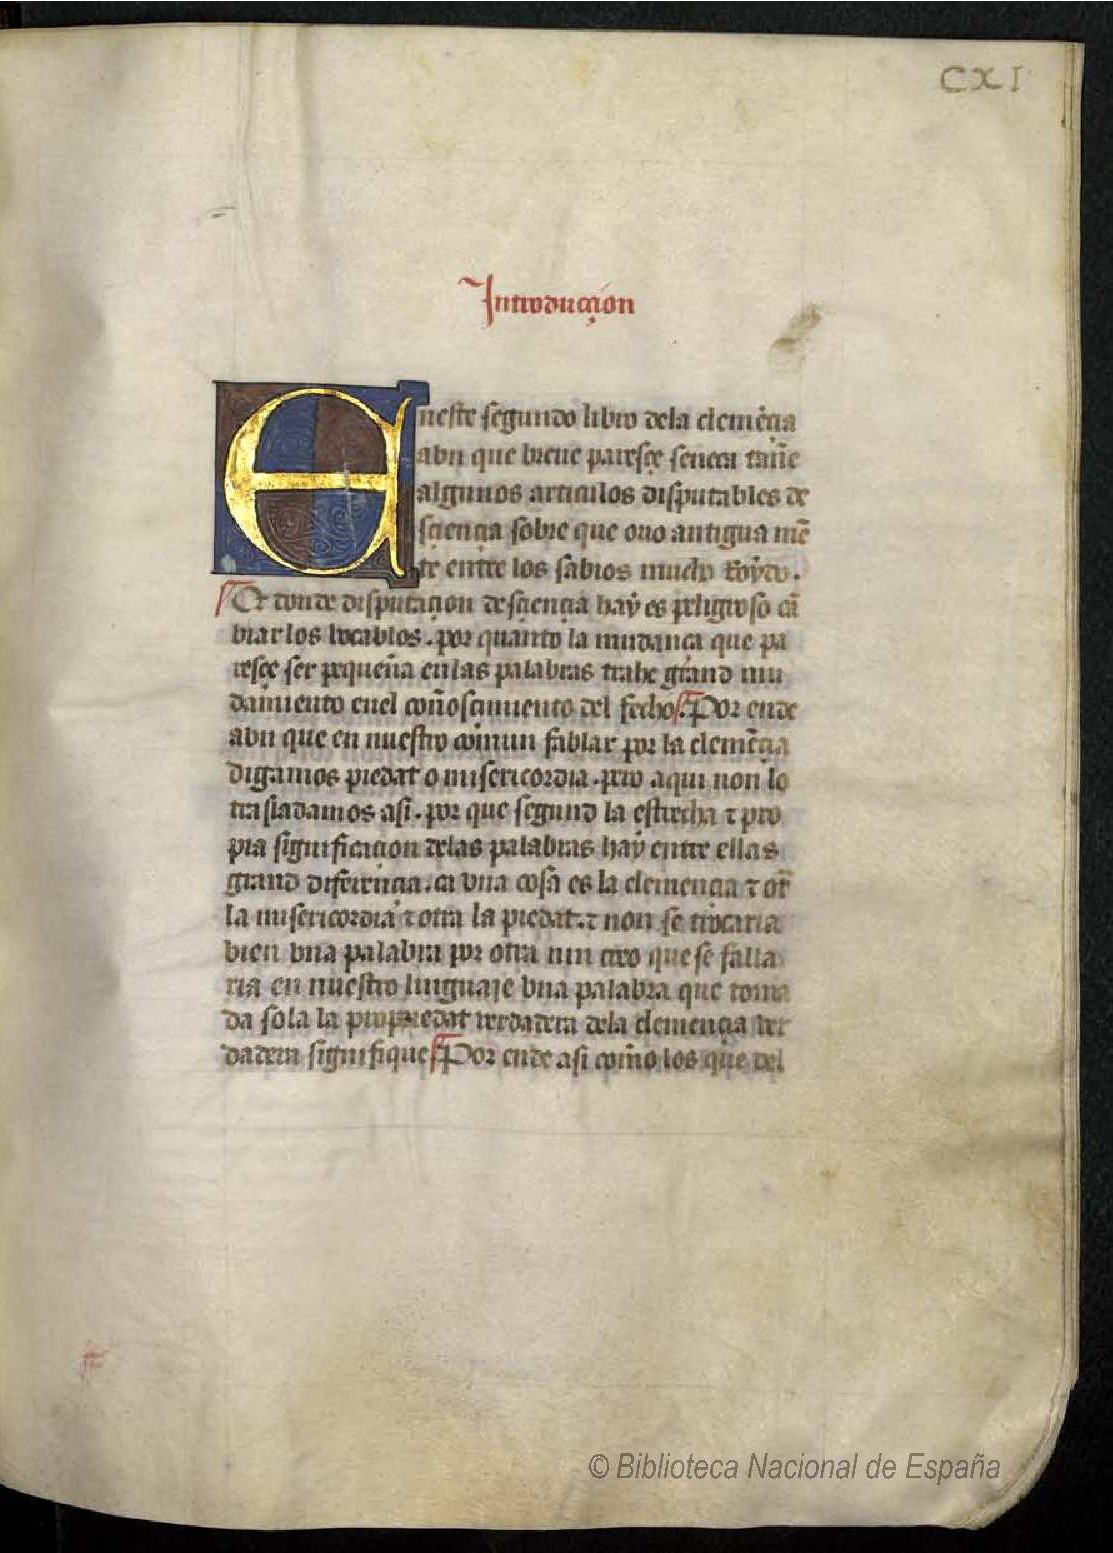 CXI
Introducçion
Eneste segundo libro dela clemẽçia
abn que breue paresçe seneca tañe
algunos articulos disputables de
sçiençia sobre que ouo antigua mẽ
te entre los sabios mucho Roydo.
Et donde disputaçion de sçiençia hay es peligroso cã
biar los vocablos. por quanto la mudança que pa
resçe ser pequeña enlas palabras trahe grand mu
damiento enel coñosçimiento del fecho. Por ende
abn que en nuestro comun fablar por la clemẽçia
digamos piedat o misericordia. pero aqui non lo
trasladamos asi. por que segund la estrecha ⁊ pro
pia significacion delas palabras hay entre ellas
grand diferençia. ca vna cosa es la clemencia ⁊ otͬ
la misericordia ⁊ otra la piedat. ⁊ non se trocaria
bien vna palabra por otra nin creo que se falla
ria en nuestro linguaje vna palabra que toma
da sola la propiedat verdadera dela clemençia ver
dadera signifique Por ende asi como los que del
© Biblioteca Nacional de España